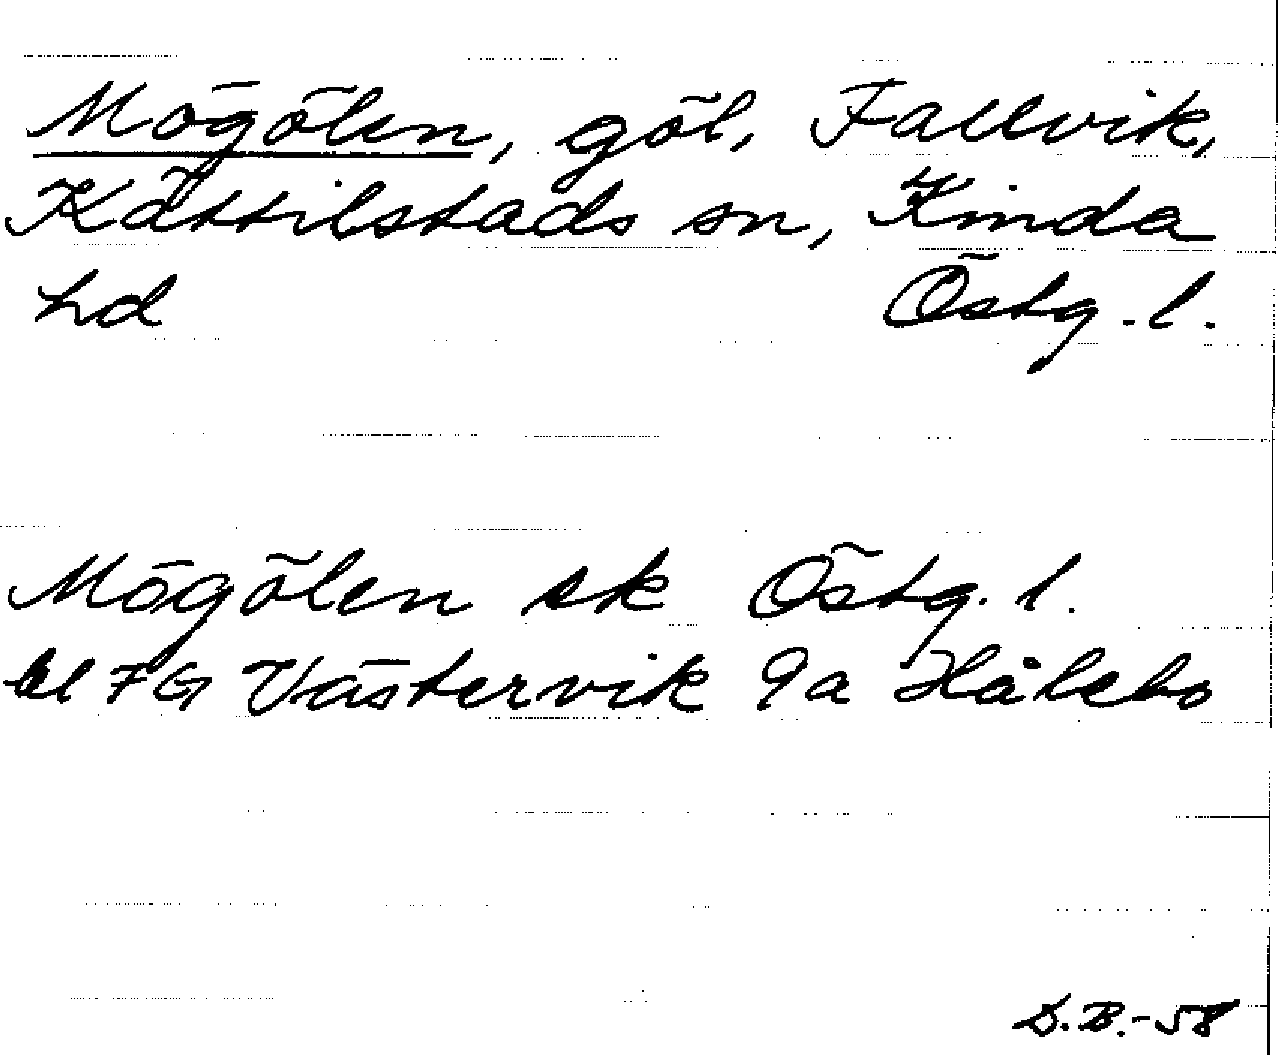 Mögölen, göl, Fallvik,
Kättilstads sn, Kinda
hd Östg. l.
Mögölen sk Östg. l.
bl 7G Västervik 9a Hålebo
S.B.-58